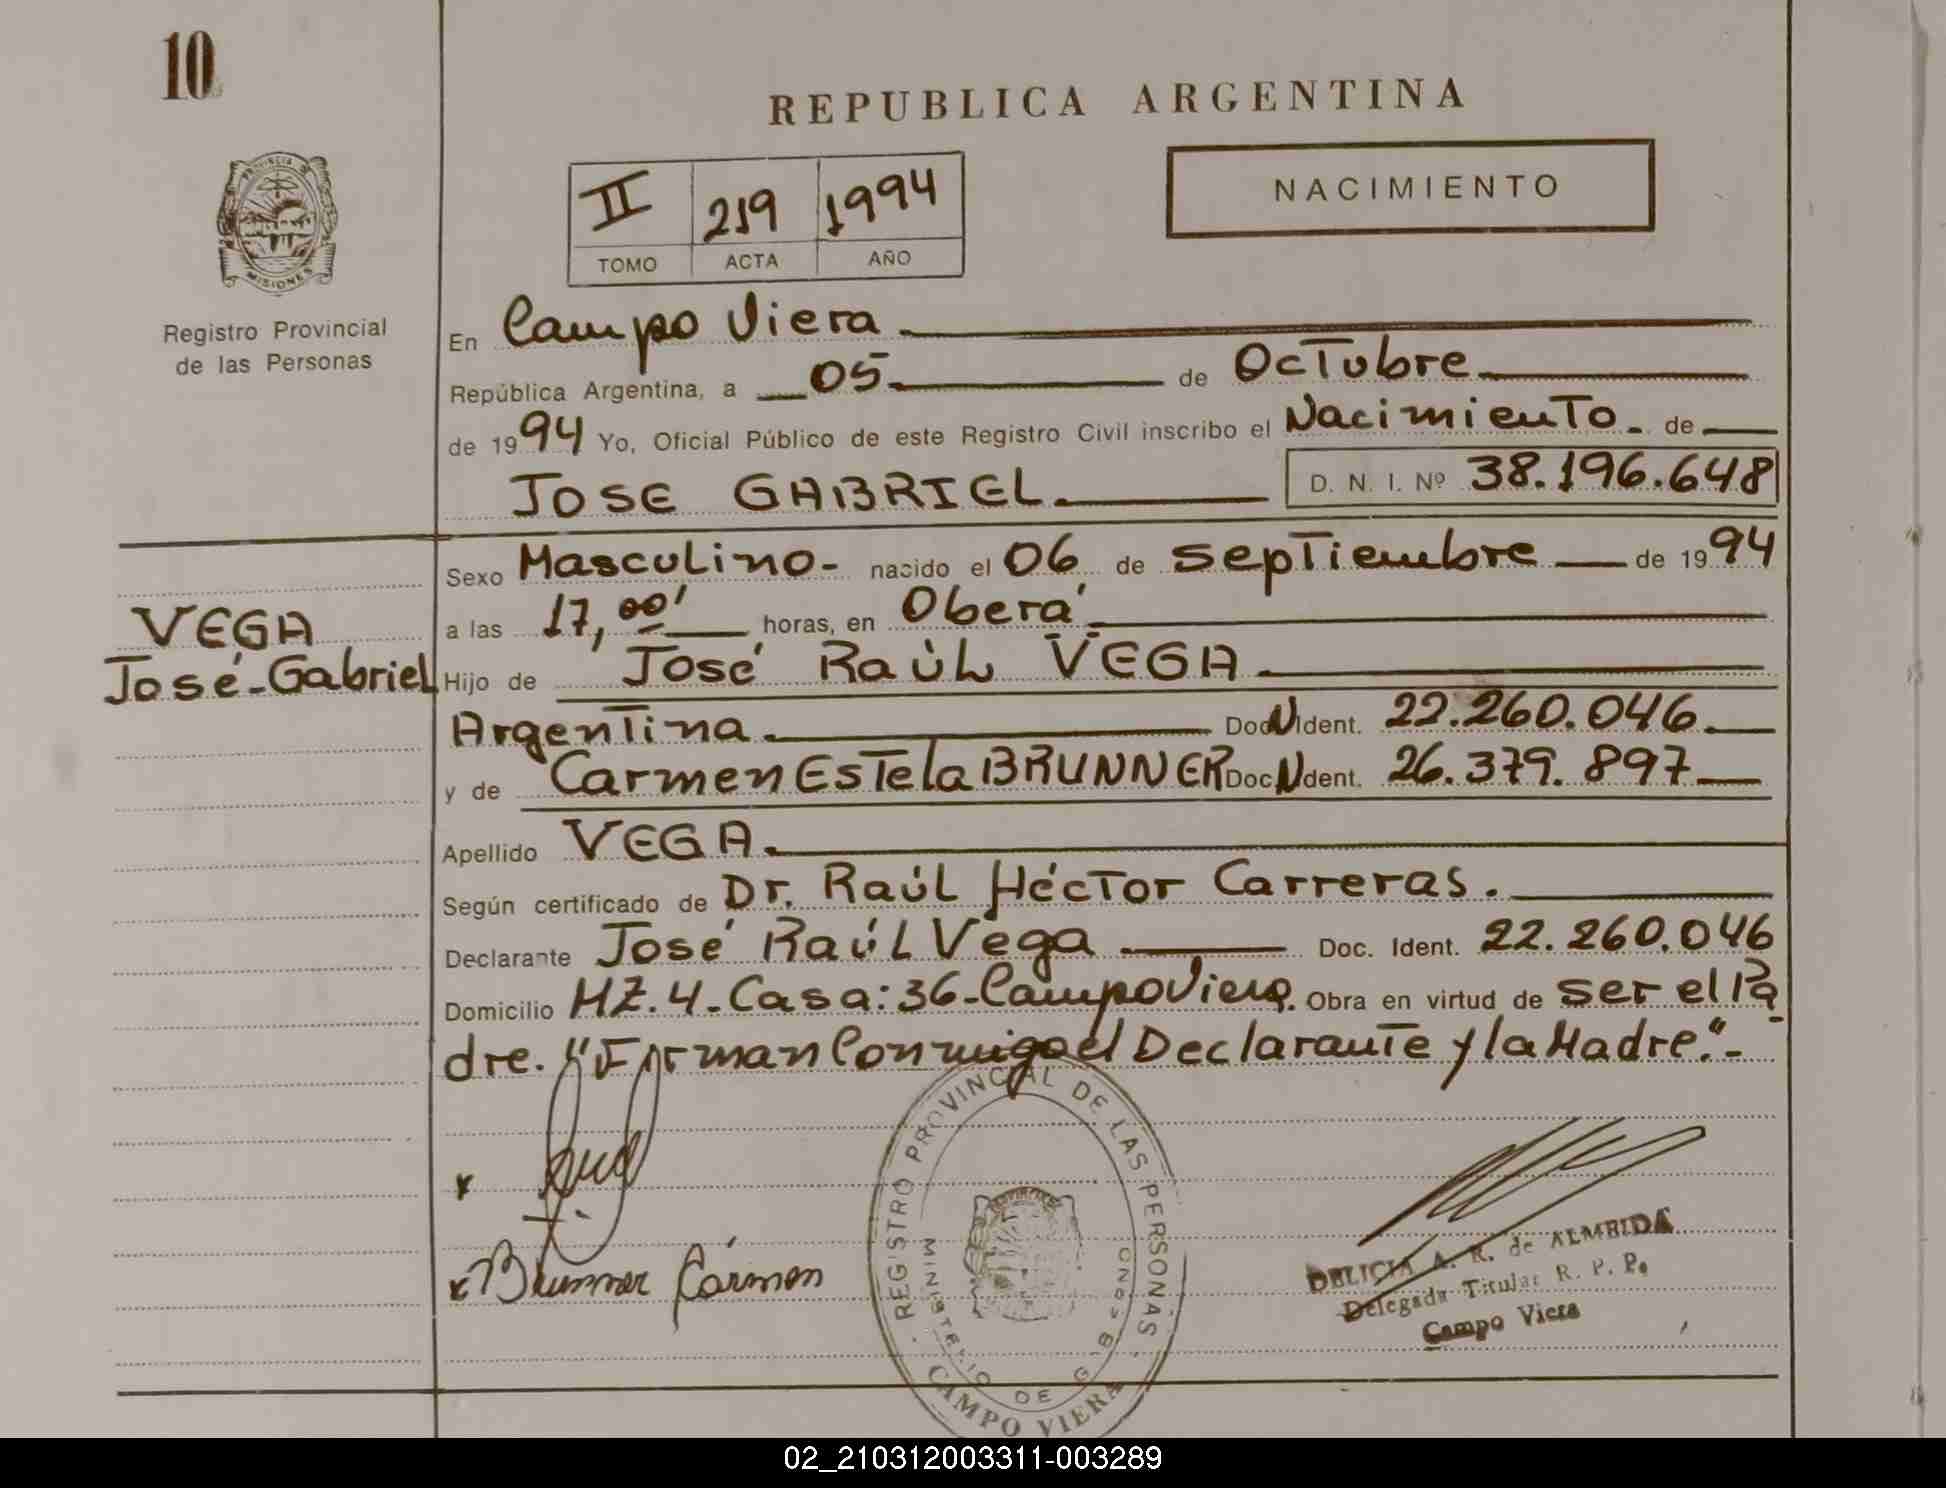 10
REPUBLICA ARGENTINA
II 219 1994
TOMO ACTA AÑO
NACIMIENTO
PROVINCIA DE
MISIONES
Registro Provincial
de las Personas
En Campo Viera
República Argentina, a 05 de Octubre
de 1994 Yo, Oficial Público de este Registro Civil inscribo el Nacimiento de
JOSE GABRIEL. D. N. I. Nº 38.196.648
VEGA
José-Gabriel
Sexo Masculino- nacido el 06 de Septiembre de 1994
a las 17,00' horas, en Oberá
Hijo de José Raúl VEGA
Argentina. Doc N Ident. 22.260.046.
y de Carmen Estela BRUNNER Doc N dent. 26.379.897
Apellido VEGA.
Según certificado de Dr. Raúl Héctor Carreras.
Declarante José Raúl Vega Doc. Ident. 22.260.046
Domicilio MZ.4-Casa:36-Campo Viera. Obra en virtud de ser el Pa
dre. "Firman Conmigo el Declarante y la Madre."-
x
x Brunner Carmen
REGISTRO PROVINCIAL DE LAS PERSONAS
MINISTERIO DE GOBIERNO
CAMPO VIERA
DELICIA A. R. de ALMEIDA
Delegada Titular R. P. P.
Campo Viera
02_210312003311-003289